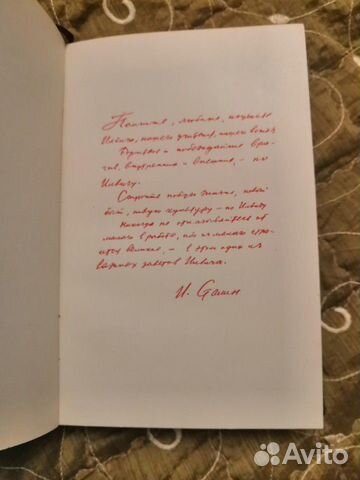 Помните, любите, изучайте
Ильича, нашего учителя, нашего вождя.
Боритесь и побеждайте вра-
гов, внутренних и внешних, – по
Ильичу.
Стройте новую жизнь, новый
быт, новую культуру – по Ильичу
Никогда не отказывайтесь от
малого в работе, ибо из малого стро-
ится великое, – в этом один из
важных заветов Ильича.
И. Сталин
Avito